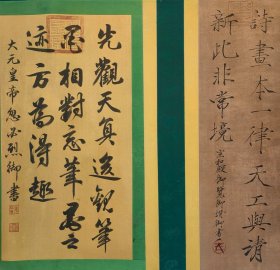 詩畫本一律天工與清
新此非常境
先觀天真後觀筆
意相對忘筆墨之
迹方為得趣
大元皇帝忽必烈御書